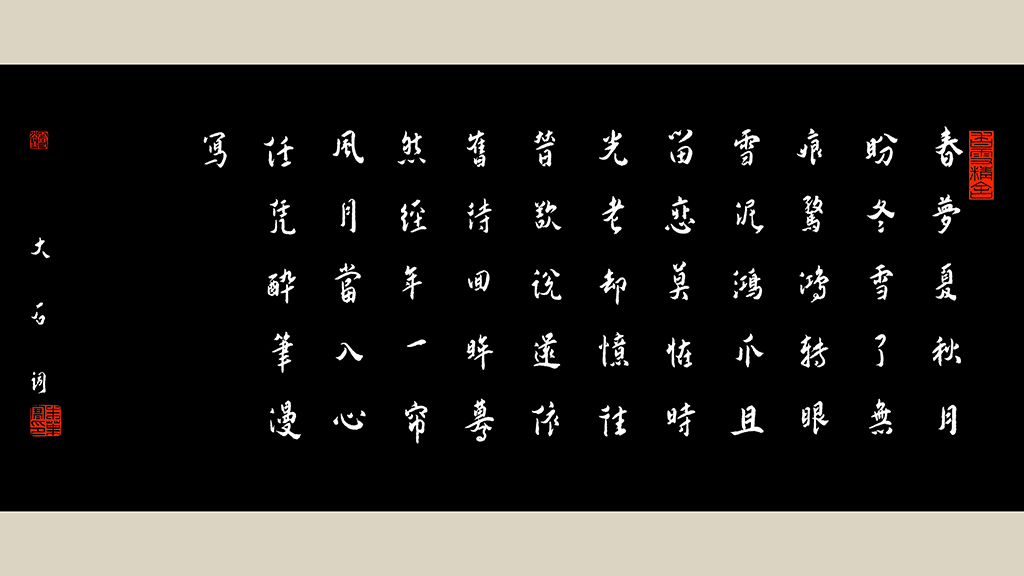 春夢夏秋月
盼冬雪了無
痕驚鴻转眼
雪泥鴻爪且
留恋莫恠時
光老却憶往
昔欲説還依
舊待回眸驀
然經年一帘
風月當入心
任凭醉筆漫
寫
大石词